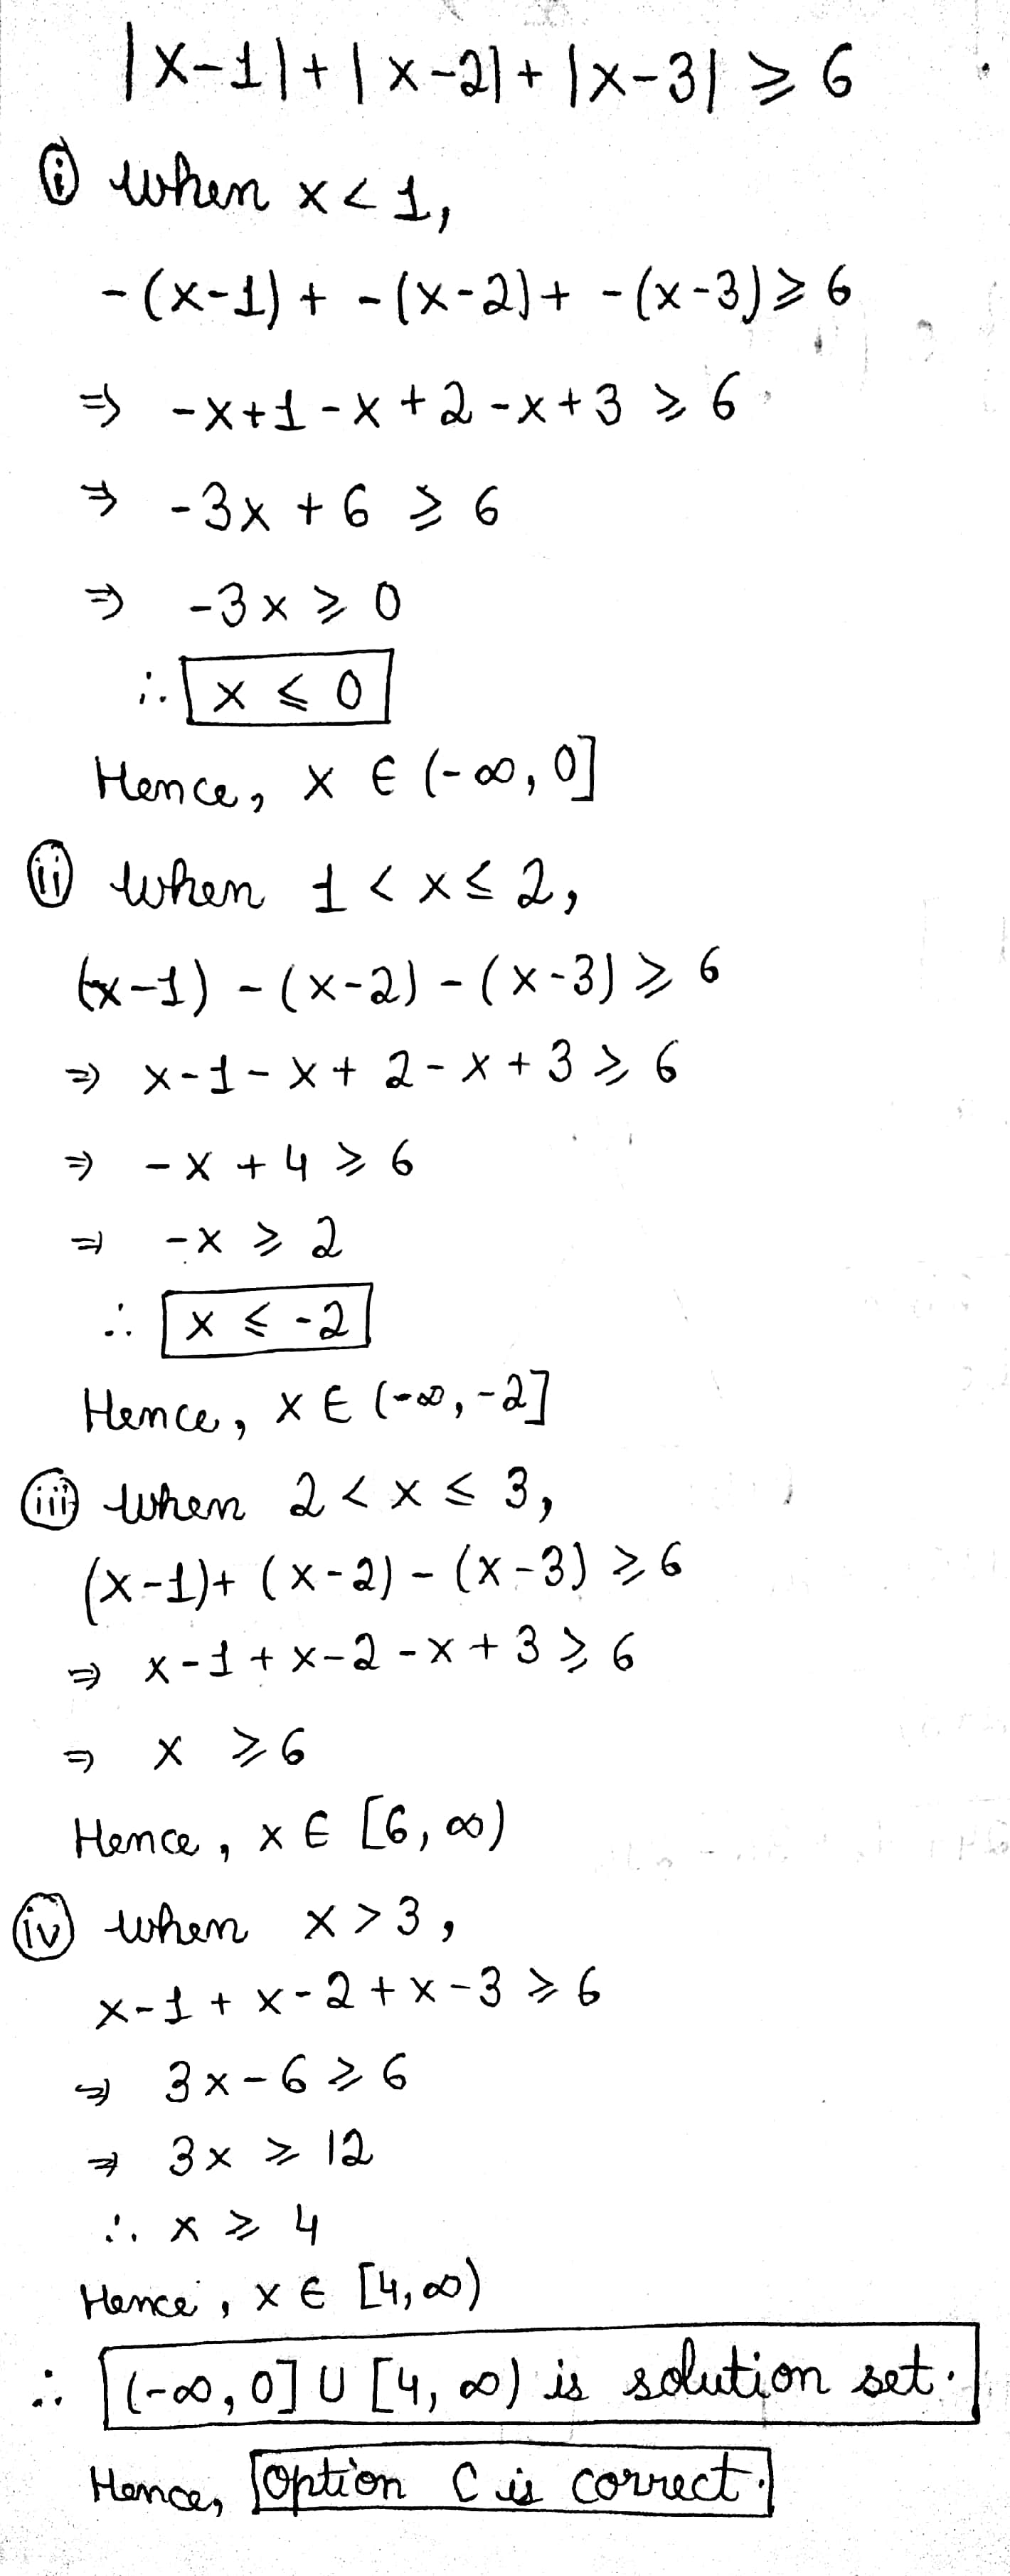 |x-1|+|x-2|+|x-3| ⩾ 6
(i) when x < 1,
-(x-1) + -(x-2) + -(x-3) ⩾ 6
⇒ -x+1-x+2-x+3 ⩾ 6
⇒ -3x + 6 ⩾ 6
⇒ -3x ⩾ 0
∴ x ⩽ 0
Hence, x ∈ (-∞, 0]
(ii) when 1 < x ≤ 2,
(x-1) - (x-2) - (x-3) ⩾ 6
⇒ x-1-x+2-x+3 ⩾ 6
⇒ -x + 4 ⩾ 6
⇒ -x ⩾ 2
∴ x ⩽ -2
Hence, x ∈ (-∞, -2]
(iii) when 2 < x ≤ 3,
(x-1)+(x-2)-(x-3) ⩾ 6
⇒ x-1+x-2-x+3 ⩾ 6
⇒ x ⩾ 6
Hence, x ∈ [6, ∞)
(iv) when x > 3,
x-1+x-2+x-3 ⩾ 6
⇒ 3x-6 ⩾ 6
⇒ 3x ⩾ 12
∴ x ⩾ 4
Hence, x ∈ [4, ∞)
∴ (-∞, 0] ∪ [4, ∞) is solution set.
Hence, Option C is correct.